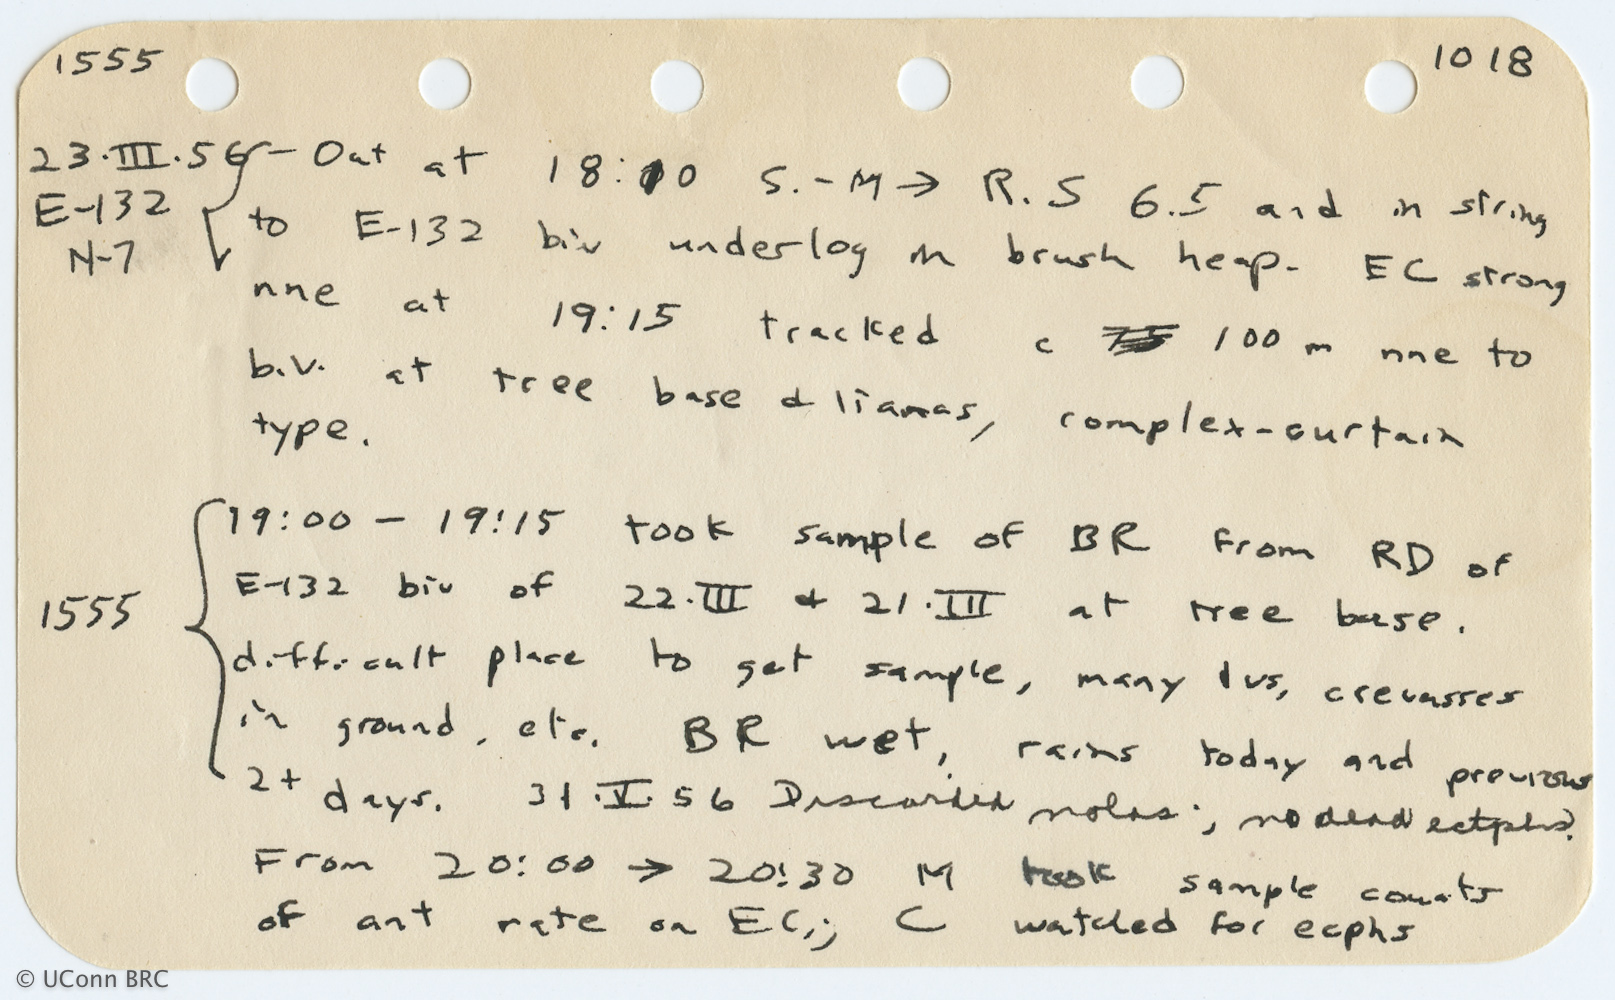 1555 1018
23.III.56 – Out at 18:10 S.-M → R.S 6.5 and in string
E-132 to E-132 biv underlog in brush heap. EC strong
N-7 nne at 19:15 tracked c 100 m nne to
b.v. at tree base & lianas, complex-curtain
type.
19:00 – 19:15 took sample of BR from RD of
E-132 biv of 22.III & 21.III at tree base.
1555 difficult place to get sample, many lvs, crevasses
in ground, etc. BR wet, rains today and previous
2+ days. 31.V.56 Discarded notes; no dead ectphs.
From 20:00 → 20:30 M took sample counts
of ant rate on EC; C watched for ecphs
© UConn BRC